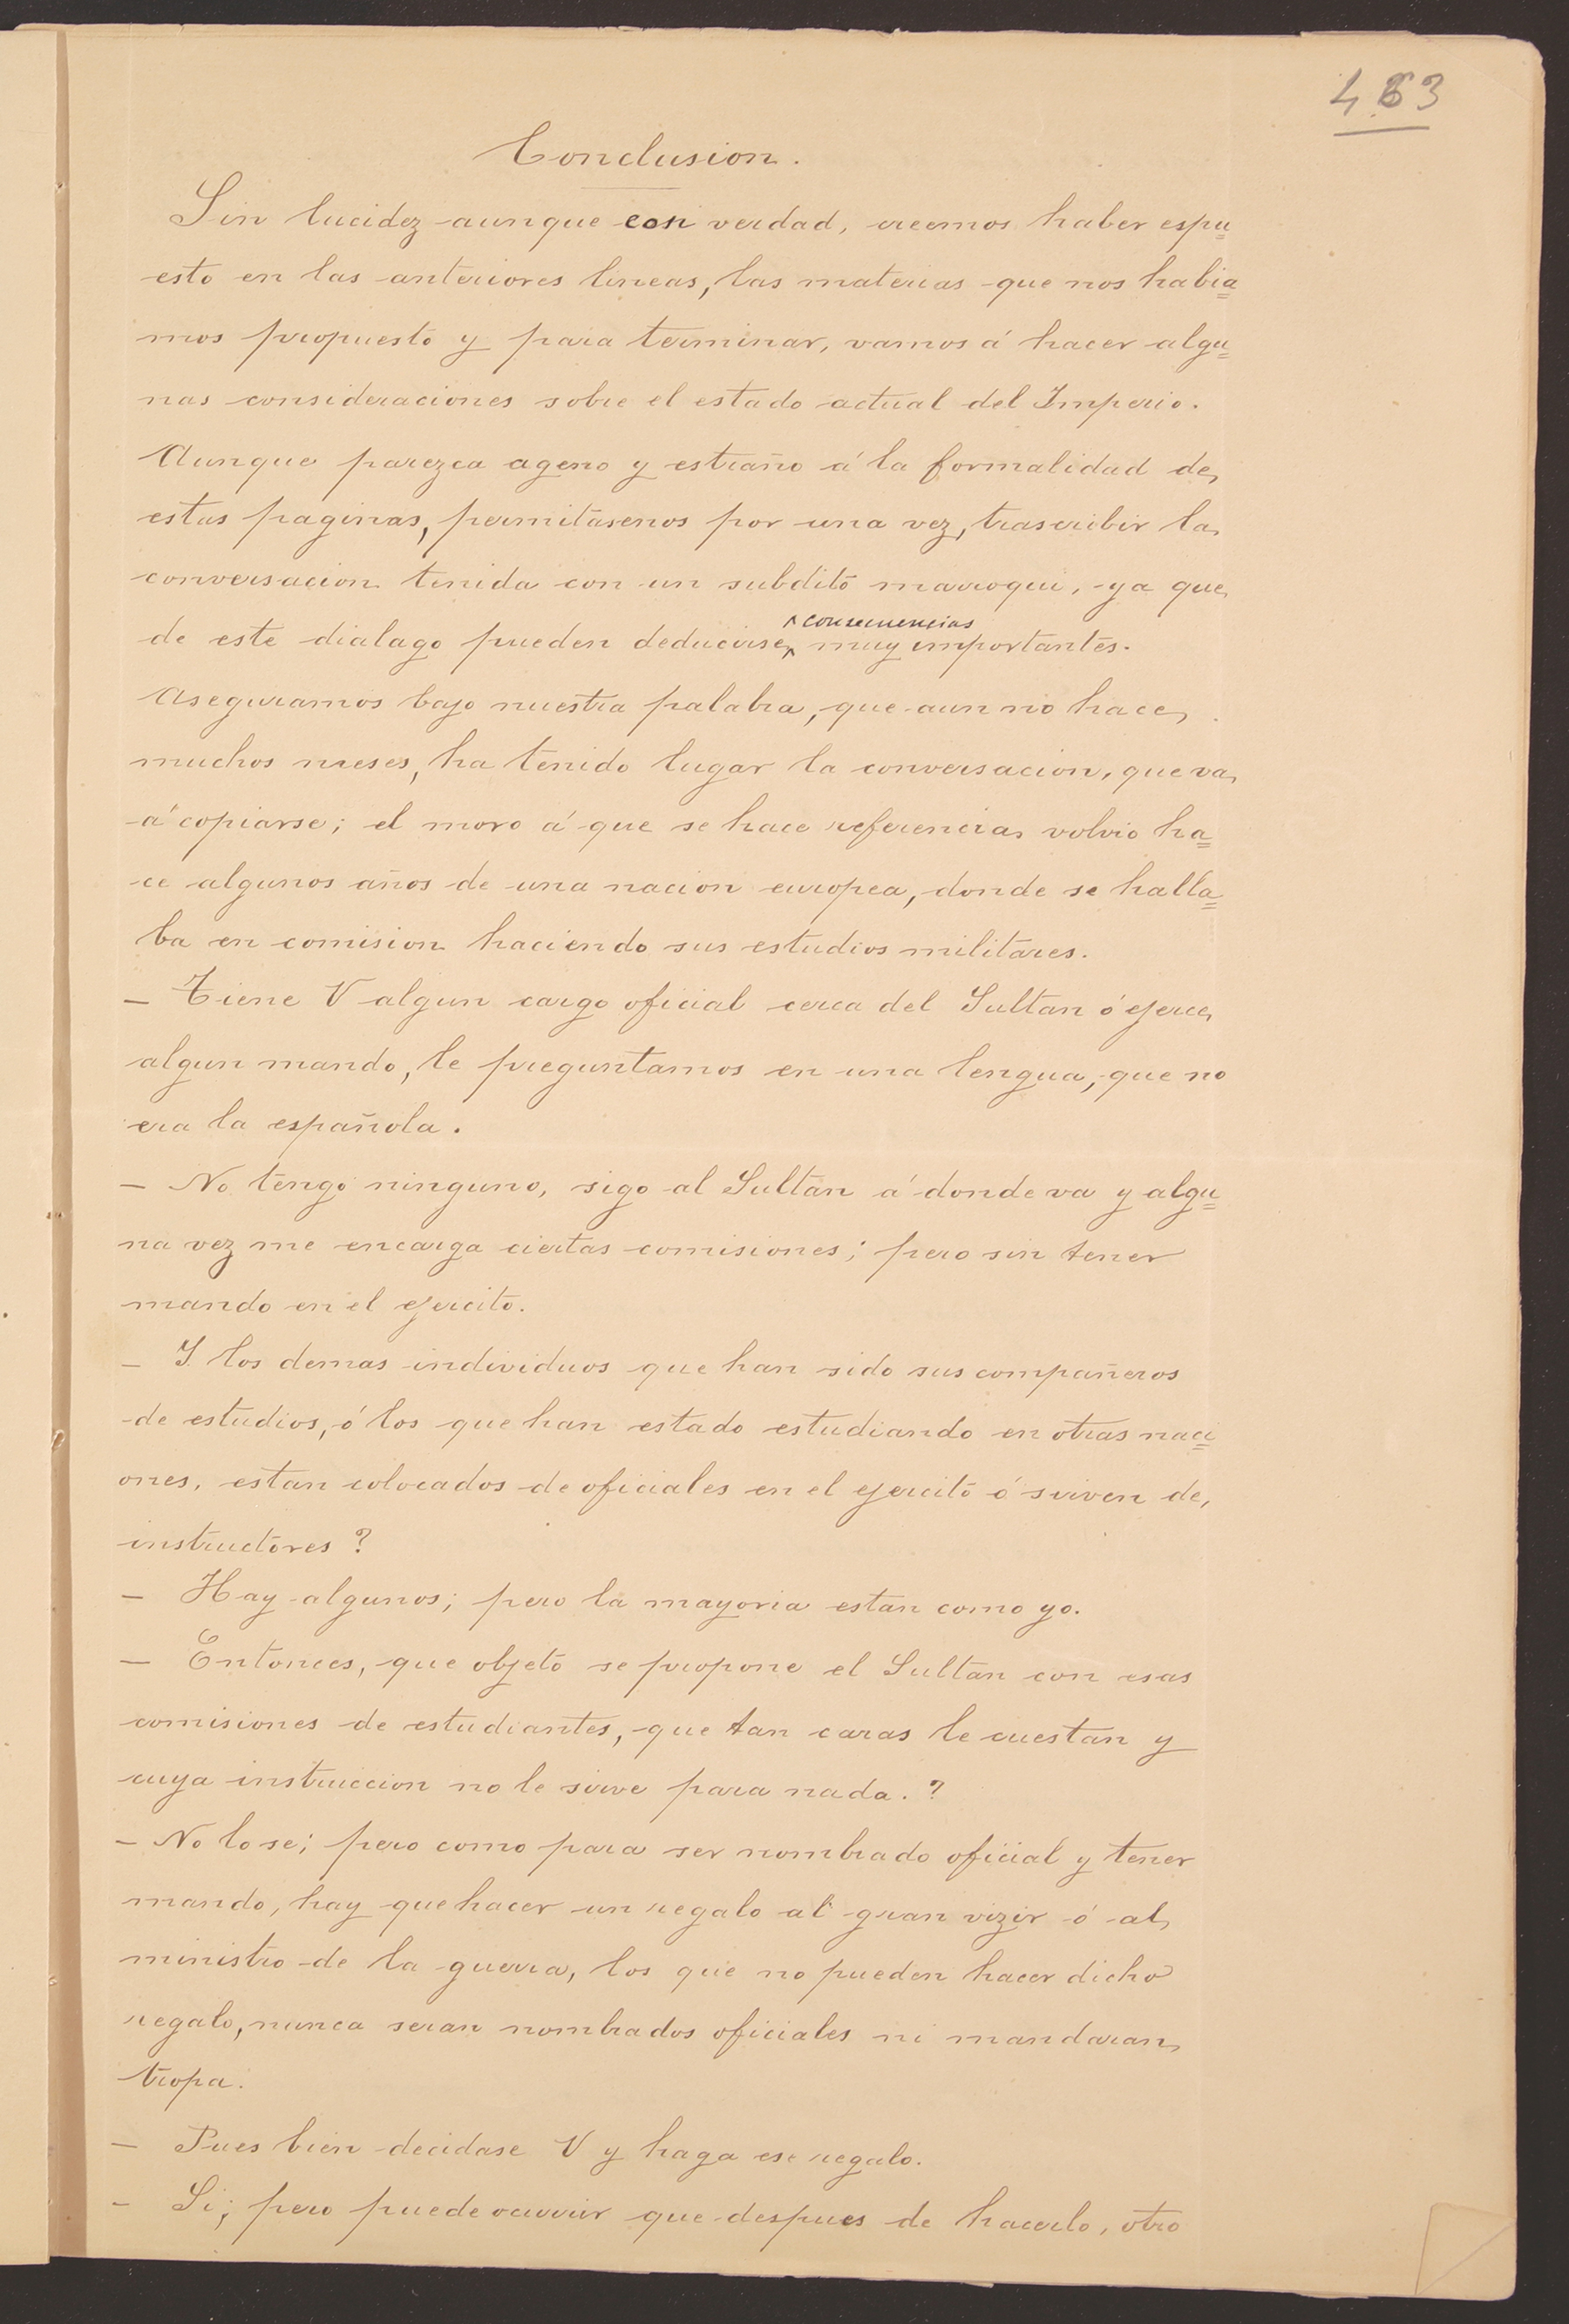 463
Conclusion.
Sin lucidez aunque con verdad, creemos haber espu=
esto en las anteriores lineas, las materias que nos habia=
mos propuesto y para terminar, vamos á hacer algu=
nas consideraciones sobre el estado actual del Imperio.
Aunque parezca ageno y estraño á la formalidad de
estas paginas, permitasenos por una vez, trascribir la
conversacion tenida con un subdito marroqui, ya que
consecuencias
de este dialago pueden deducirse muy importantes.
Aseguramos bajo nuestra palabra, que aun no hace
muchos meses, ha tenido lugar la conversacion, que va
á copiarse; el moro á que se hace referencia volvio ha=
ce algunos años de una nacion europea, donde se halla=
ba en comision haciendo sus estudios militares.
— Tiene V algun cargo oficial cerca del Sultan ó ejerce
algun mando, le preguntamos en una lengua, que no
era la española.
— No tengo ninguno, sigo al Sultan á donde va y algu=
na vez me encarga ciertas comisiones; pero sin tener
mando en el ejercito.
— Y los demas individuos que han sido sus compañeros
de estudios, ó los que han estado estudiando en otras naci=
ones, estan colocados de oficiales en el ejercito ó sirven de
instructores?
— Hay algunos; pero la mayoria estan como yo.
— Entonces, que objeto se propone el Sultan con esas
comisiones de estudiantes, que tan caras le cuestan y
cuya instruccion no le sirve para nada.?
— No lo se; pero como para ser nombrado oficial y tener
mando, hay que hacer un regalo al gran vizir ó al
ministro de la guerra, los que no pueden hacer dicho
regalo, nunca seran nombrados oficiales ni mandaran
tropa.
— Pues bien decidase V y haga ese regalo.
— Si; pero puede ocurrir que despues de hacerlo, otro